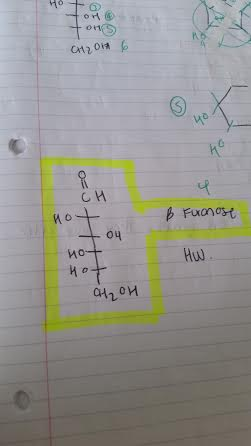 HO
OH 4
OH 5
CH2OH 6
5
HO
HO
O
CH
HO
OH
HO
HO
CH2OH
β Furanose
HW.